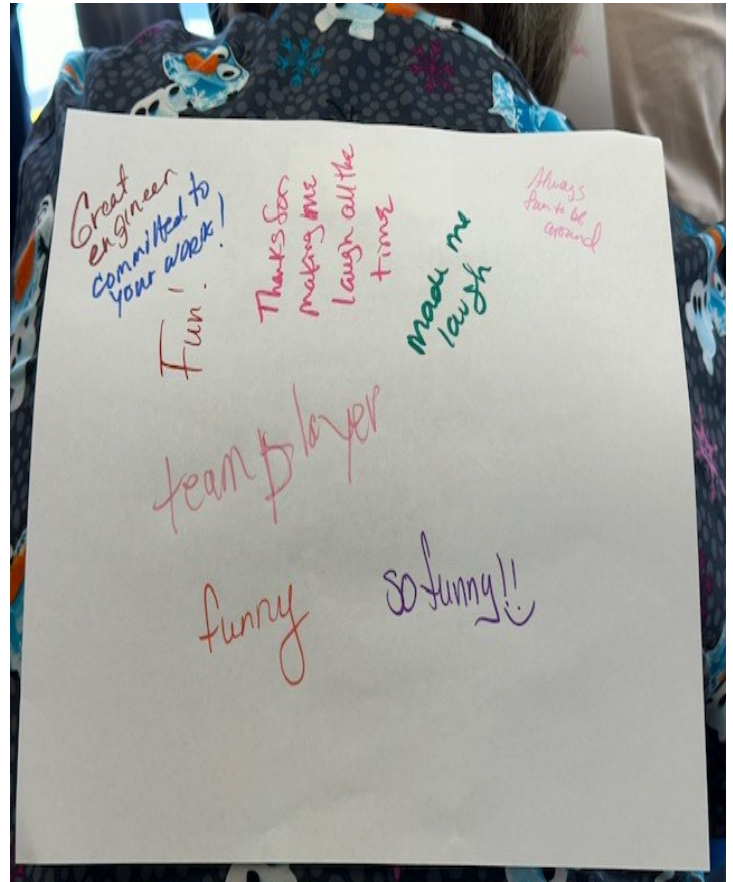 Great
engineer
committed to
your work!
Fun!
Thanks for
making me
laugh all the
time
made me
laugh
Always
fun to be
around
team player
funny
so funny!!